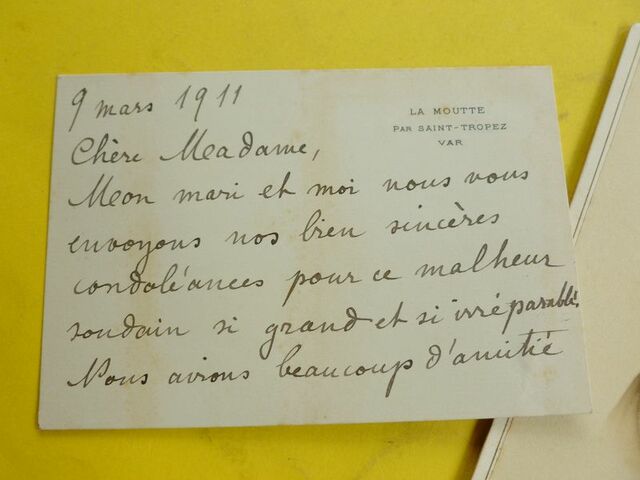 9 mars 1911
LA MOUTTE
PAR SAINT-TROPEZ
VAR
Chère Madame,
Mon mari et moi nous vous
envoyons nos bien sincères
condoléances pour ce malheur
soudain si grand et si irréparable.
Nous avions beaucoup d'amitié